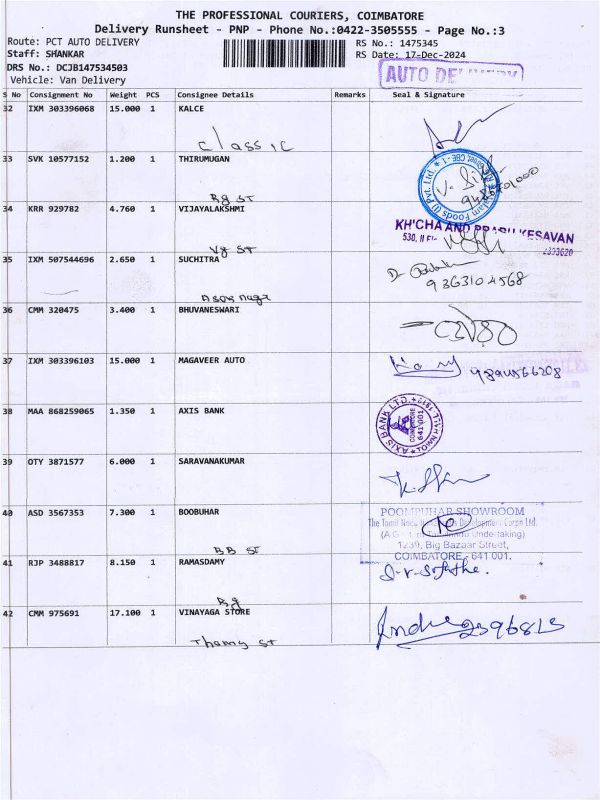 THE PROFESSIONAL COURIERS, COIMBATORE
Delivery Runsheet - PNP - Phone No.:0422-3505555 - Page No.:3
Route: PCT AUTO DELIVERY RS No.: 1475345
Staff: SHANKAR RS Date: 17-Dec-2024
DRS No.: DCJB147534503
Vehicle: Van Delivery
AUTO DELIVERY
S No Consignment No Weight PCS Consignee Details Remarks Seal & Signature
32 IXM 303396068 15.000 1 KALCE
Classic
33 SVK 10577152 1.200 1 THIRUMUGAN
Bg ST
34 KRR 929782 4.760 1 VIJAYALAKSHMI
KH'CHAAND PRABU KESAVAN
Vg ST
35 IXM 507544696 2.650 1 SUCHITRA
9363104568
36 CMM 320475 3.400 1 BHUVANESWARI
37 IXM 303396103 15.000 1 MAGAVEER AUTO
38 MAA 868259065 1.350 1 AXIS BANK
AXIS BANK LTD. TOWN HALL COIMBATORE 641 001
39 OTY 3871577 6.000 1 SARAVANAKUMAR
40 ASD 3567353 7.300 1 BOOBUHAR
POOMPUHAR SHOWROOM
The Tamil Nadu Development Corpn Ltd.
1239, Big Bazaar Street,
COIMBATORE - 641 001.
BB ST
41 RJP 3488817 8.150 1 RAMASDAMY
Bg
42 CMM 975691 17.100 1 VINAYAGA STORE
ST